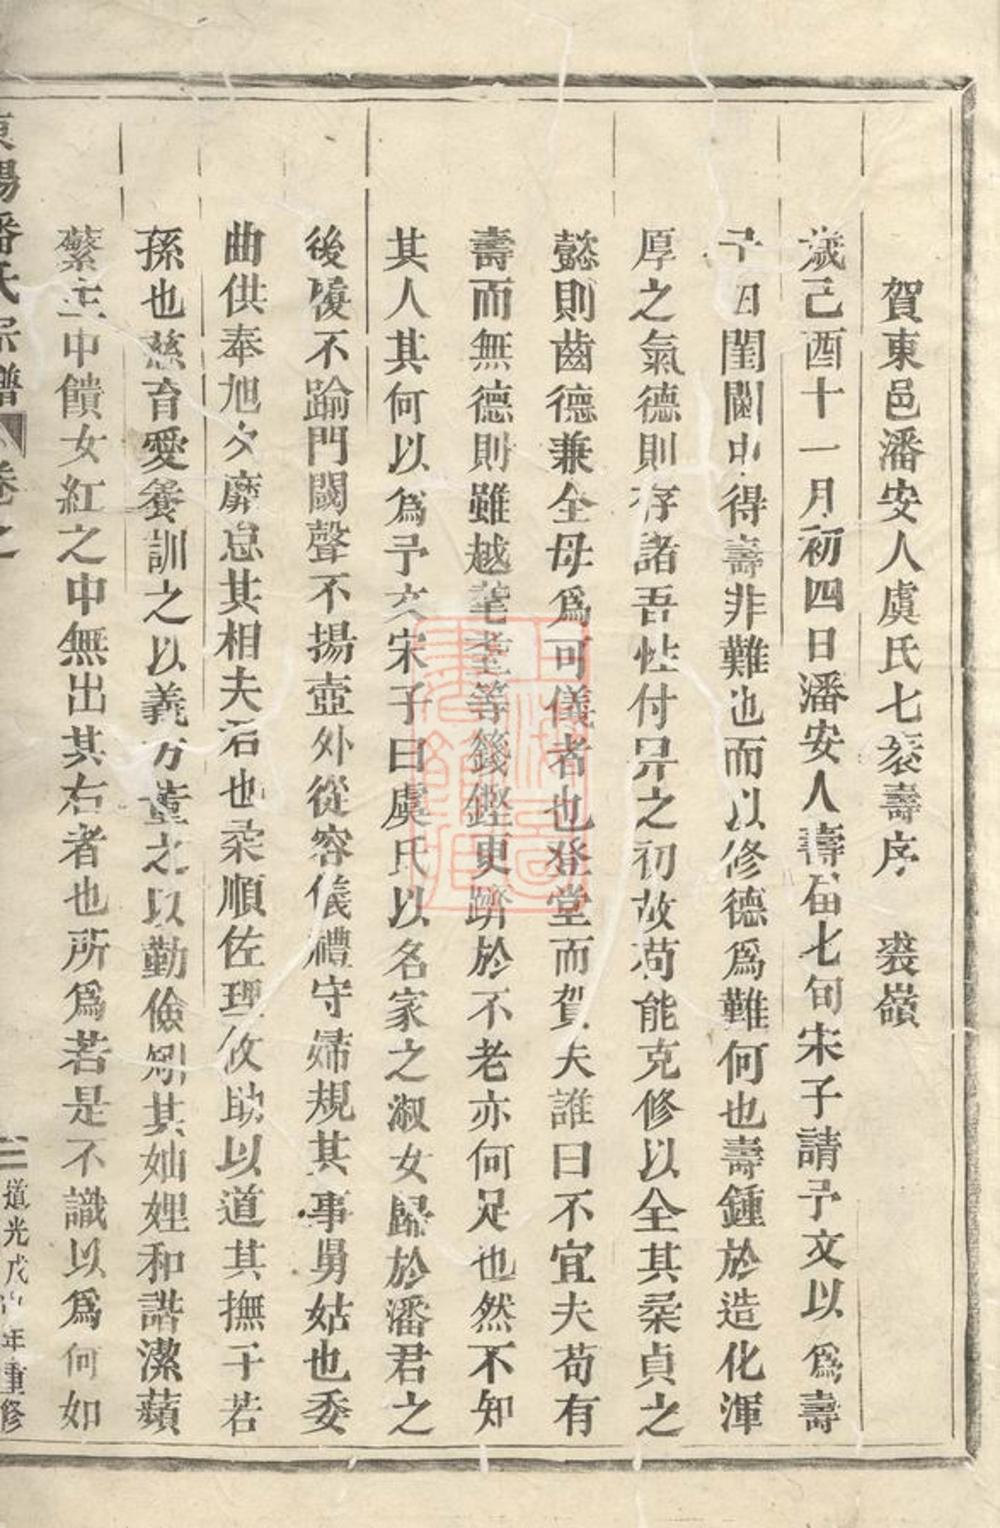 賀東邑潘安人虞氏七袠壽序　裘嶺
歲己酉十一月初四日潘安人壽屆七旬宋子請予文以為壽
予曰閨閫中得壽非難也而以修德為難何也壽鍾於造化渾
厚之氣德則存諸吾性付畀之初故苟能克修以全其柔貞之
懿則齒德兼全母為可儀者也登堂而賀夫誰曰不宜夫苟有
壽而無德則雖越耄耋等籛鏗更躋於不老亦何足也然不知
其人其何以為予文宋子曰虞氏以名家之淑女歸於潘君之
後履不踰門閾聲不揚壺外從容儀禮守婦規其事舅姑也委
曲供奉旭夕靡怠其相夫君也柔順佐理攸助以道其撫子若
孫也慈育愛養訓之以義方董之以勤儉剏其妯娌和諧潔蘋
蘩主中饋女紅之中無出其右者也所為若是不識以為何如
東陽潘氏宗譜　卷之　道光戊 年重修